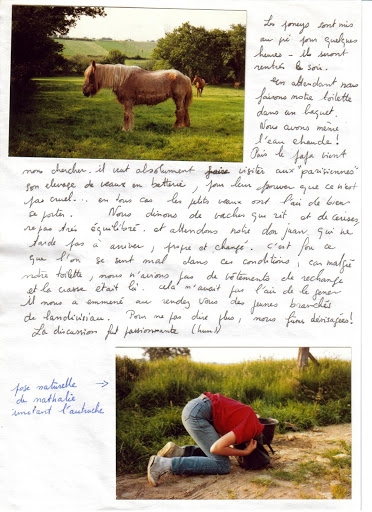 Les poneys sont mis
au pré pour quelques
heures - ils seront
rentrés le soir.
En attendant nous
faisons notre toilette
dans un baquet.
Nous avons même
l'eau chaude!
Puis le papa vient
nous chercher. il veut absolument faire visiter aux "parisiennes"
son élevage de veaux en batterie, pour leur prouver que ce n'est
pas cruel... en tous cas les petits veaux ont l'air de bien
se porter. Nous dinons de vache qui rit et de cerises,
repas très équilibré. et attendons notre don juan, qui ne
tarde pas à arriver, propre et changé. c'est fou ce
que l'on se sent mal dans ces conditions, car malgré
notre toilette, nous n'avions pas de vêtements de rechange
et la crasse était là. cela n'avait pas l'air de le gener
il nous a emmené au rendez vous des jeunes branchés
de landivisiau. Pour ne pas dire plus, nous fûmes dévisagées!
La discussion fut passionnante (hum!)
pose naturelle →
de nathalie
imitant l'autruche